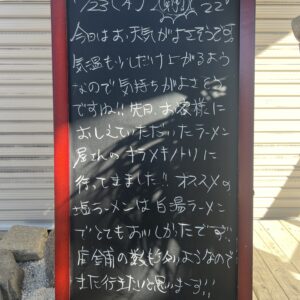 1/23(木) 22°
今日はお天気がよさそうです。
気温も少しだけ上がるよう
なので気持ちがよさそう
ですね!! 先日、お客様に
おしえていただいたラーメン
屋さんの
行ってきました!! オススメの
塩ラーメンは白湯ラーメン
でとてもおいしかったです。
店舗の数も多いようなので
また行きたいと思いまーす!!